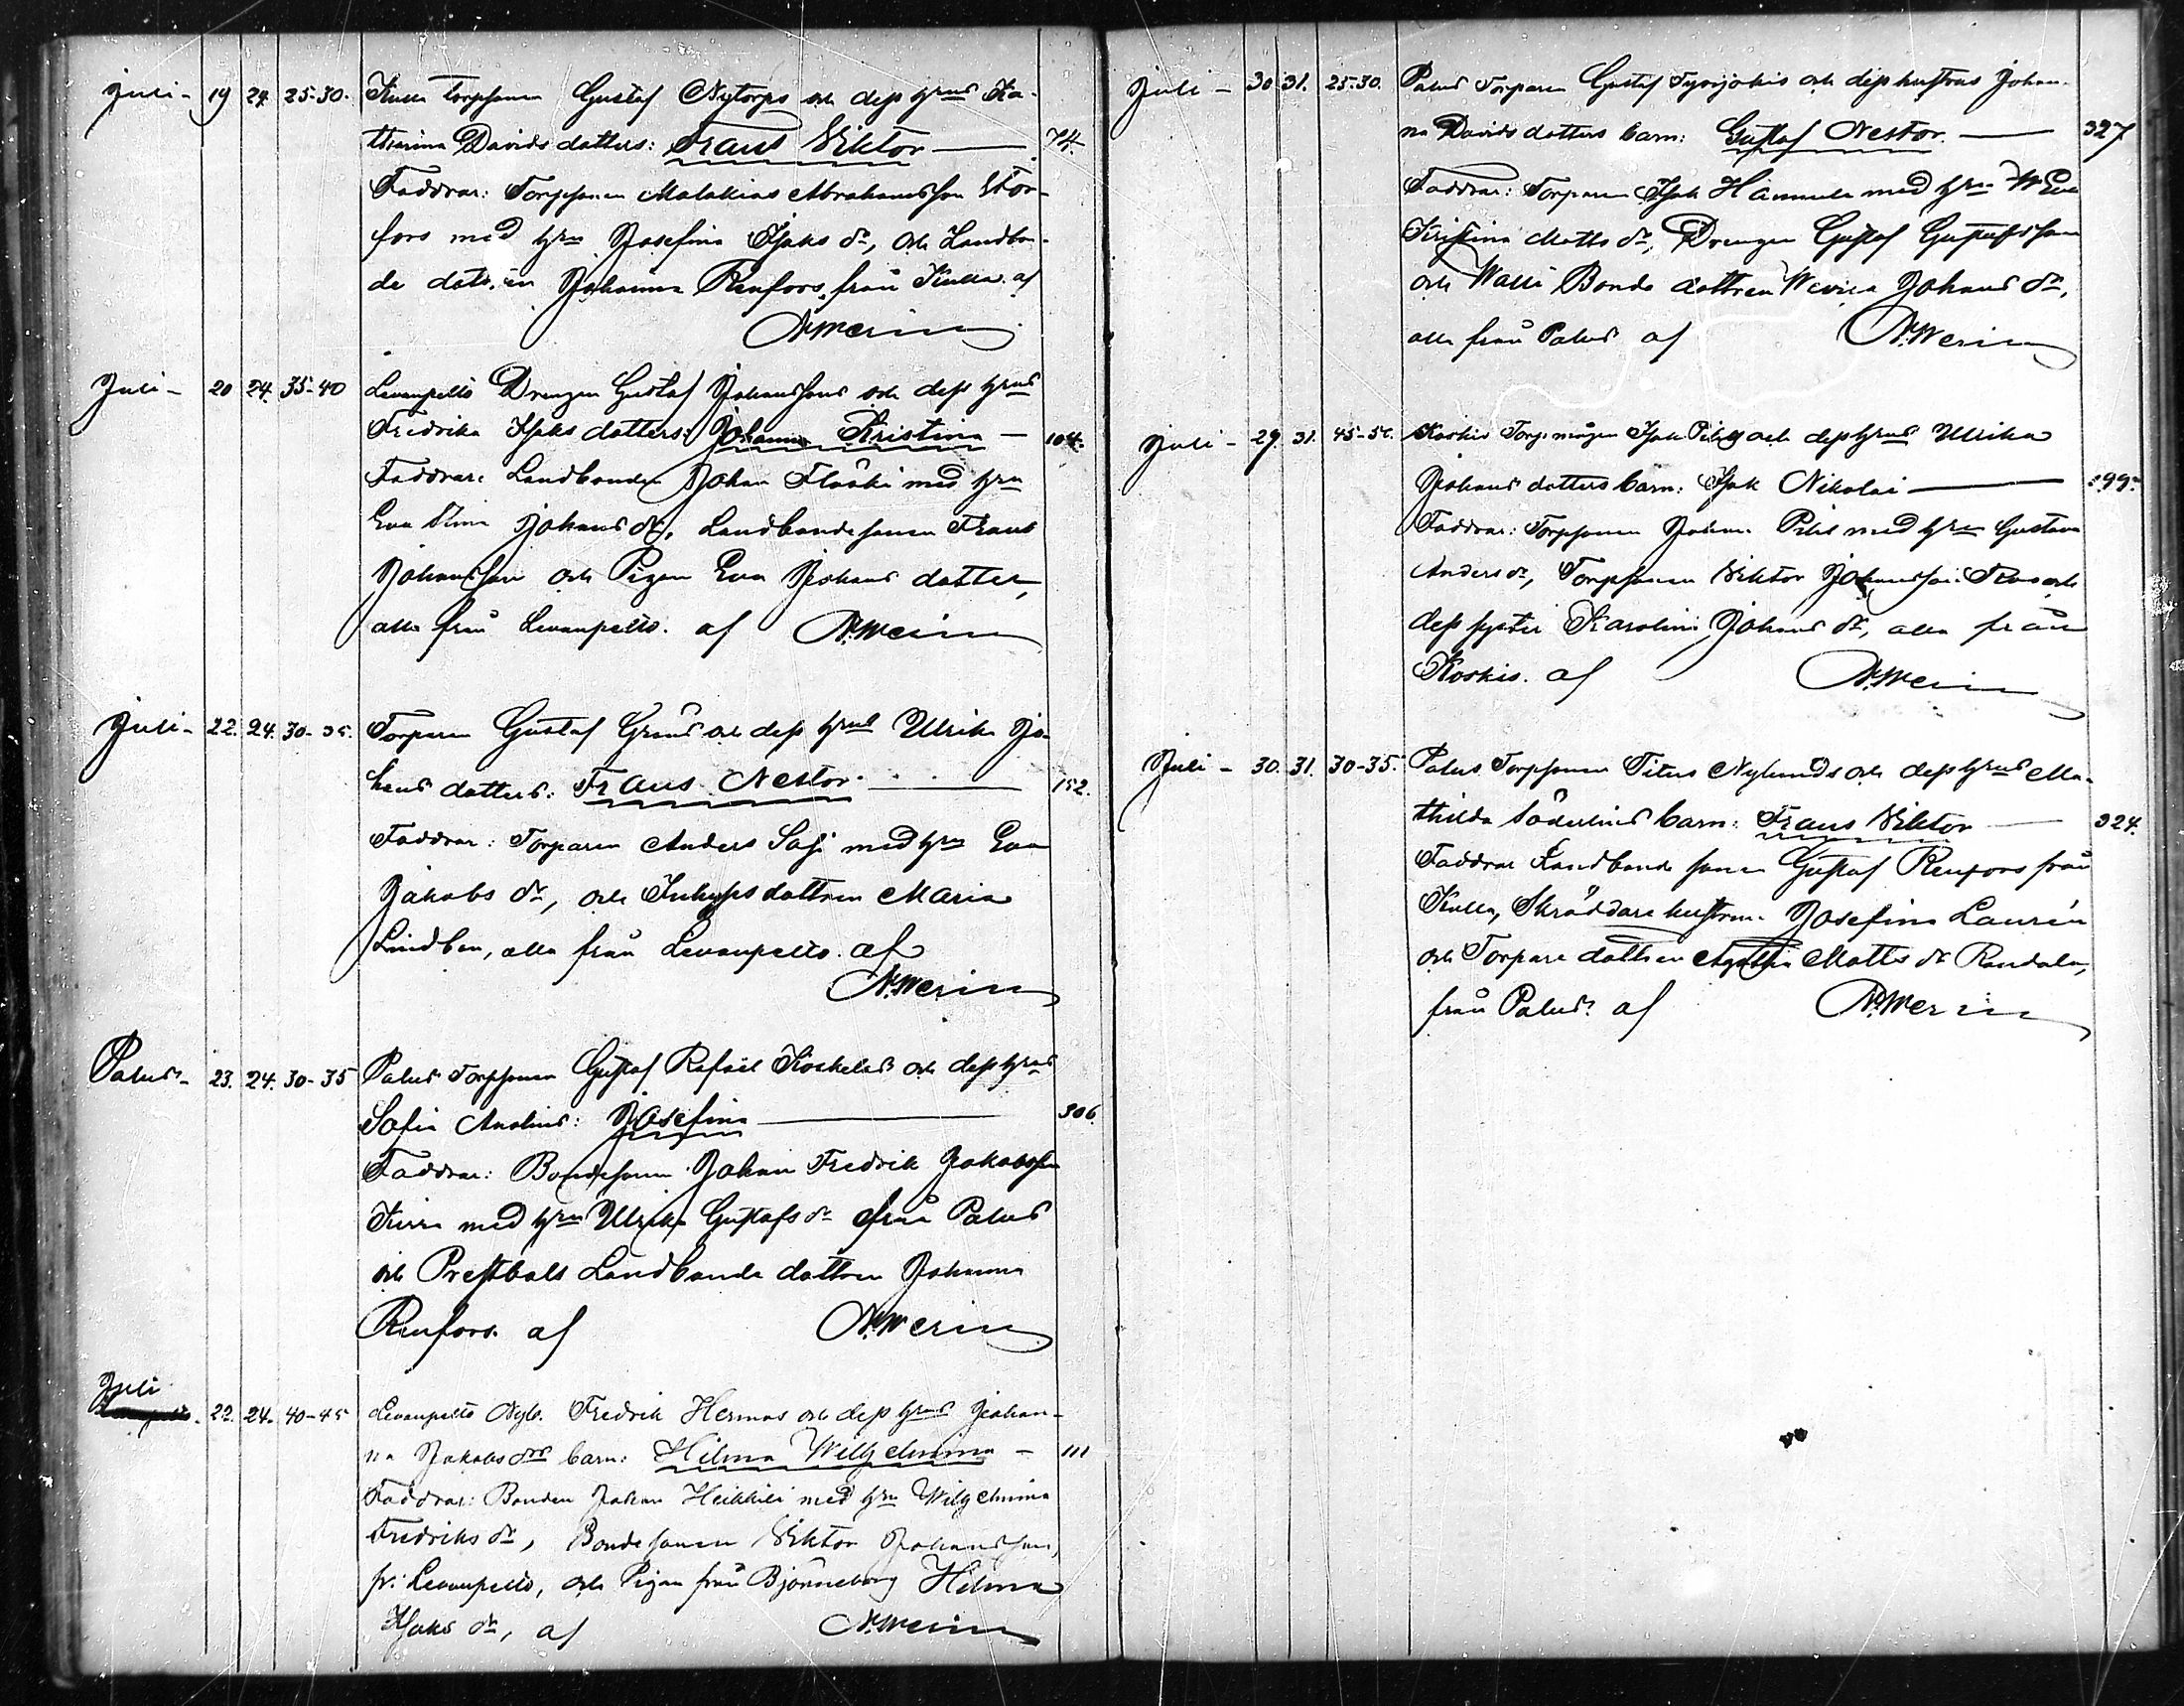 Juli - 19 24. 25-30. Kulla Torpsonen Gustaf Nytorps och dess hrus Ka-
tharina Davids dotters: Frans Viktor — 74.
Faddrar: Torpsonen Malakias Abrahamsson Stor-
fors med hru Josefina Isaks dr, och Landbon-
de dotren Johanna Renfors, från Kulla. af
N. Merin
Juli - 20 24. 35-40 Levanpelto Drengen Gustaf Johanssons och dess hrus
Fredrika Isaks dotters: Johanna Kristina — 104.
Faddrar: Landbonden Johan Flaaki med hru
Eva Stina Johans dr, Landbondesonen Frans
Johansson och Pigan Eva Johans dotter,
alla från Levanpelto. af N. Merin
Juli - 22. 24. 30-35. Torparen Gustaf Gröns och dess hrus Ulrika Jo-
hans dotters: Frans Nestor. — 152.
Faddrar: Torparen Anders Sasi med hru Eva
Jakobs dr, och Inhyses dottren Maria
Lindben, alla från Levanpelto. af
N. Merin
Palus - 23. 24. 30-35 Palus Torpsonen Gustaf Rafael Koskelas och dess hrus
Sofia Analius: Josefina — 306.
Faddrar: Bondesonen Johan Fredrik Jakobsson
Kirra med hru Ulrika Gustafs dr från Palus
och Prestbols Landbonde dottren Johanna
Renfors. af N. Merin
Juli
- 22. 24. 40-45 Levanpelto Nyb. Fredrik Hermas och dess hrus Johan-
na Jakobs drs barn: Hilma Wilhelmina — 111
Faddrar: Bonden Johan Heikkilä med hru Wilhelmina
Fredriks dr, Bondesonen Viktor Johansson,
fr. Levanpelto, och Pigan från Björneborg Hilma
Isaks dr, af N. Merin
Juli - 30 31. 25-30. Palus Torparen Gustaf Tyvijokis och dess hustrus Johan-
na Davids dotters barn: Gustaf Nestor. — 327
Faddrar: Torparen Isak Hammula med hru Eva
Kristina Matts dr, Drengen Gustaf Gustafsson
och Walli Bonde dottren Johans dr,
alla från Palus af N. Merin
Juli - 29. 31. 45-50. Koskis Torp mågen Isak och dess hrus Ulrika
Johans dotters barn: Isak Nikolai — 299.
Faddrar: Torpsonen Johan med hru Gustava
Anders dr, Torpsonen Viktor Johansson Ros och
dess syster Karolina Johans dr, alla från
Koskis. af N. Merin
Juli - 30. 31. 30-35. Palus Torpsonen Titus Nylunds och dess hrus Ma-
thilda Söderlins barn: Frans Viktor — 324.
Faddrar Landbonde sonen Gustaf Renfors från
Kulla, Skräddare hustrun Josefina Laurén
och Torpare dottren Agatha Matts dr Randala,
från Palus. af N. Merin